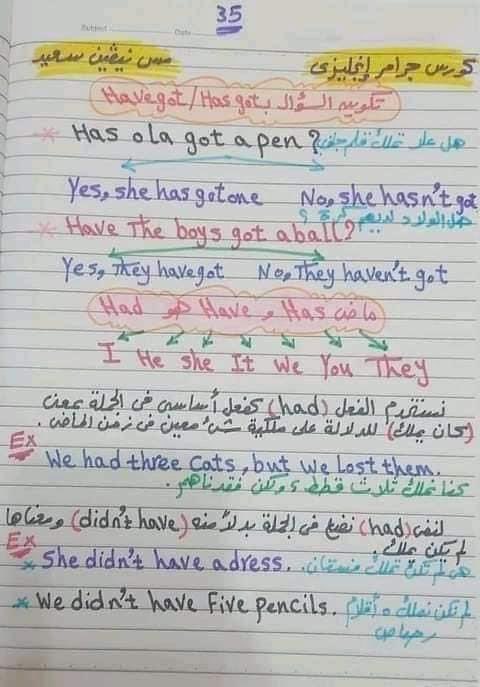 35
Subject Date
كورس جرامر إنجليزى مس نيڤين سعيد
تكوين السؤال بـ Have got / Has got
Has ola got a pen? هل علا تملك قلم جف
Yes, she has got one No, she hasn't got
هل الولاد لديهم كرة ؟
Have The boys got a ball?
Yes, They have got No, They haven't got
ماضى Has و Have هو Had
I He she It we You They
نستخدم الفعل (had) كفعل أساسى فى الجملة بمعنى
(كان يملك) للدلالة على ملكية شئ معين فى زمن الماضى.
Ex
We had three cats, but we Lost them.
كنا نملك ثلاث قطط ولكن فقدناهم.
لنفى (had) نضع فى الجملة بدلاً منه (didn't have) ومعناها
لم يكن يملك.
Ex
* She didn't have a dress. هى لم تكن تملك فستان.
* We didn't have Five pencils. لم نكن نملك ٥ أقلام
رصاص